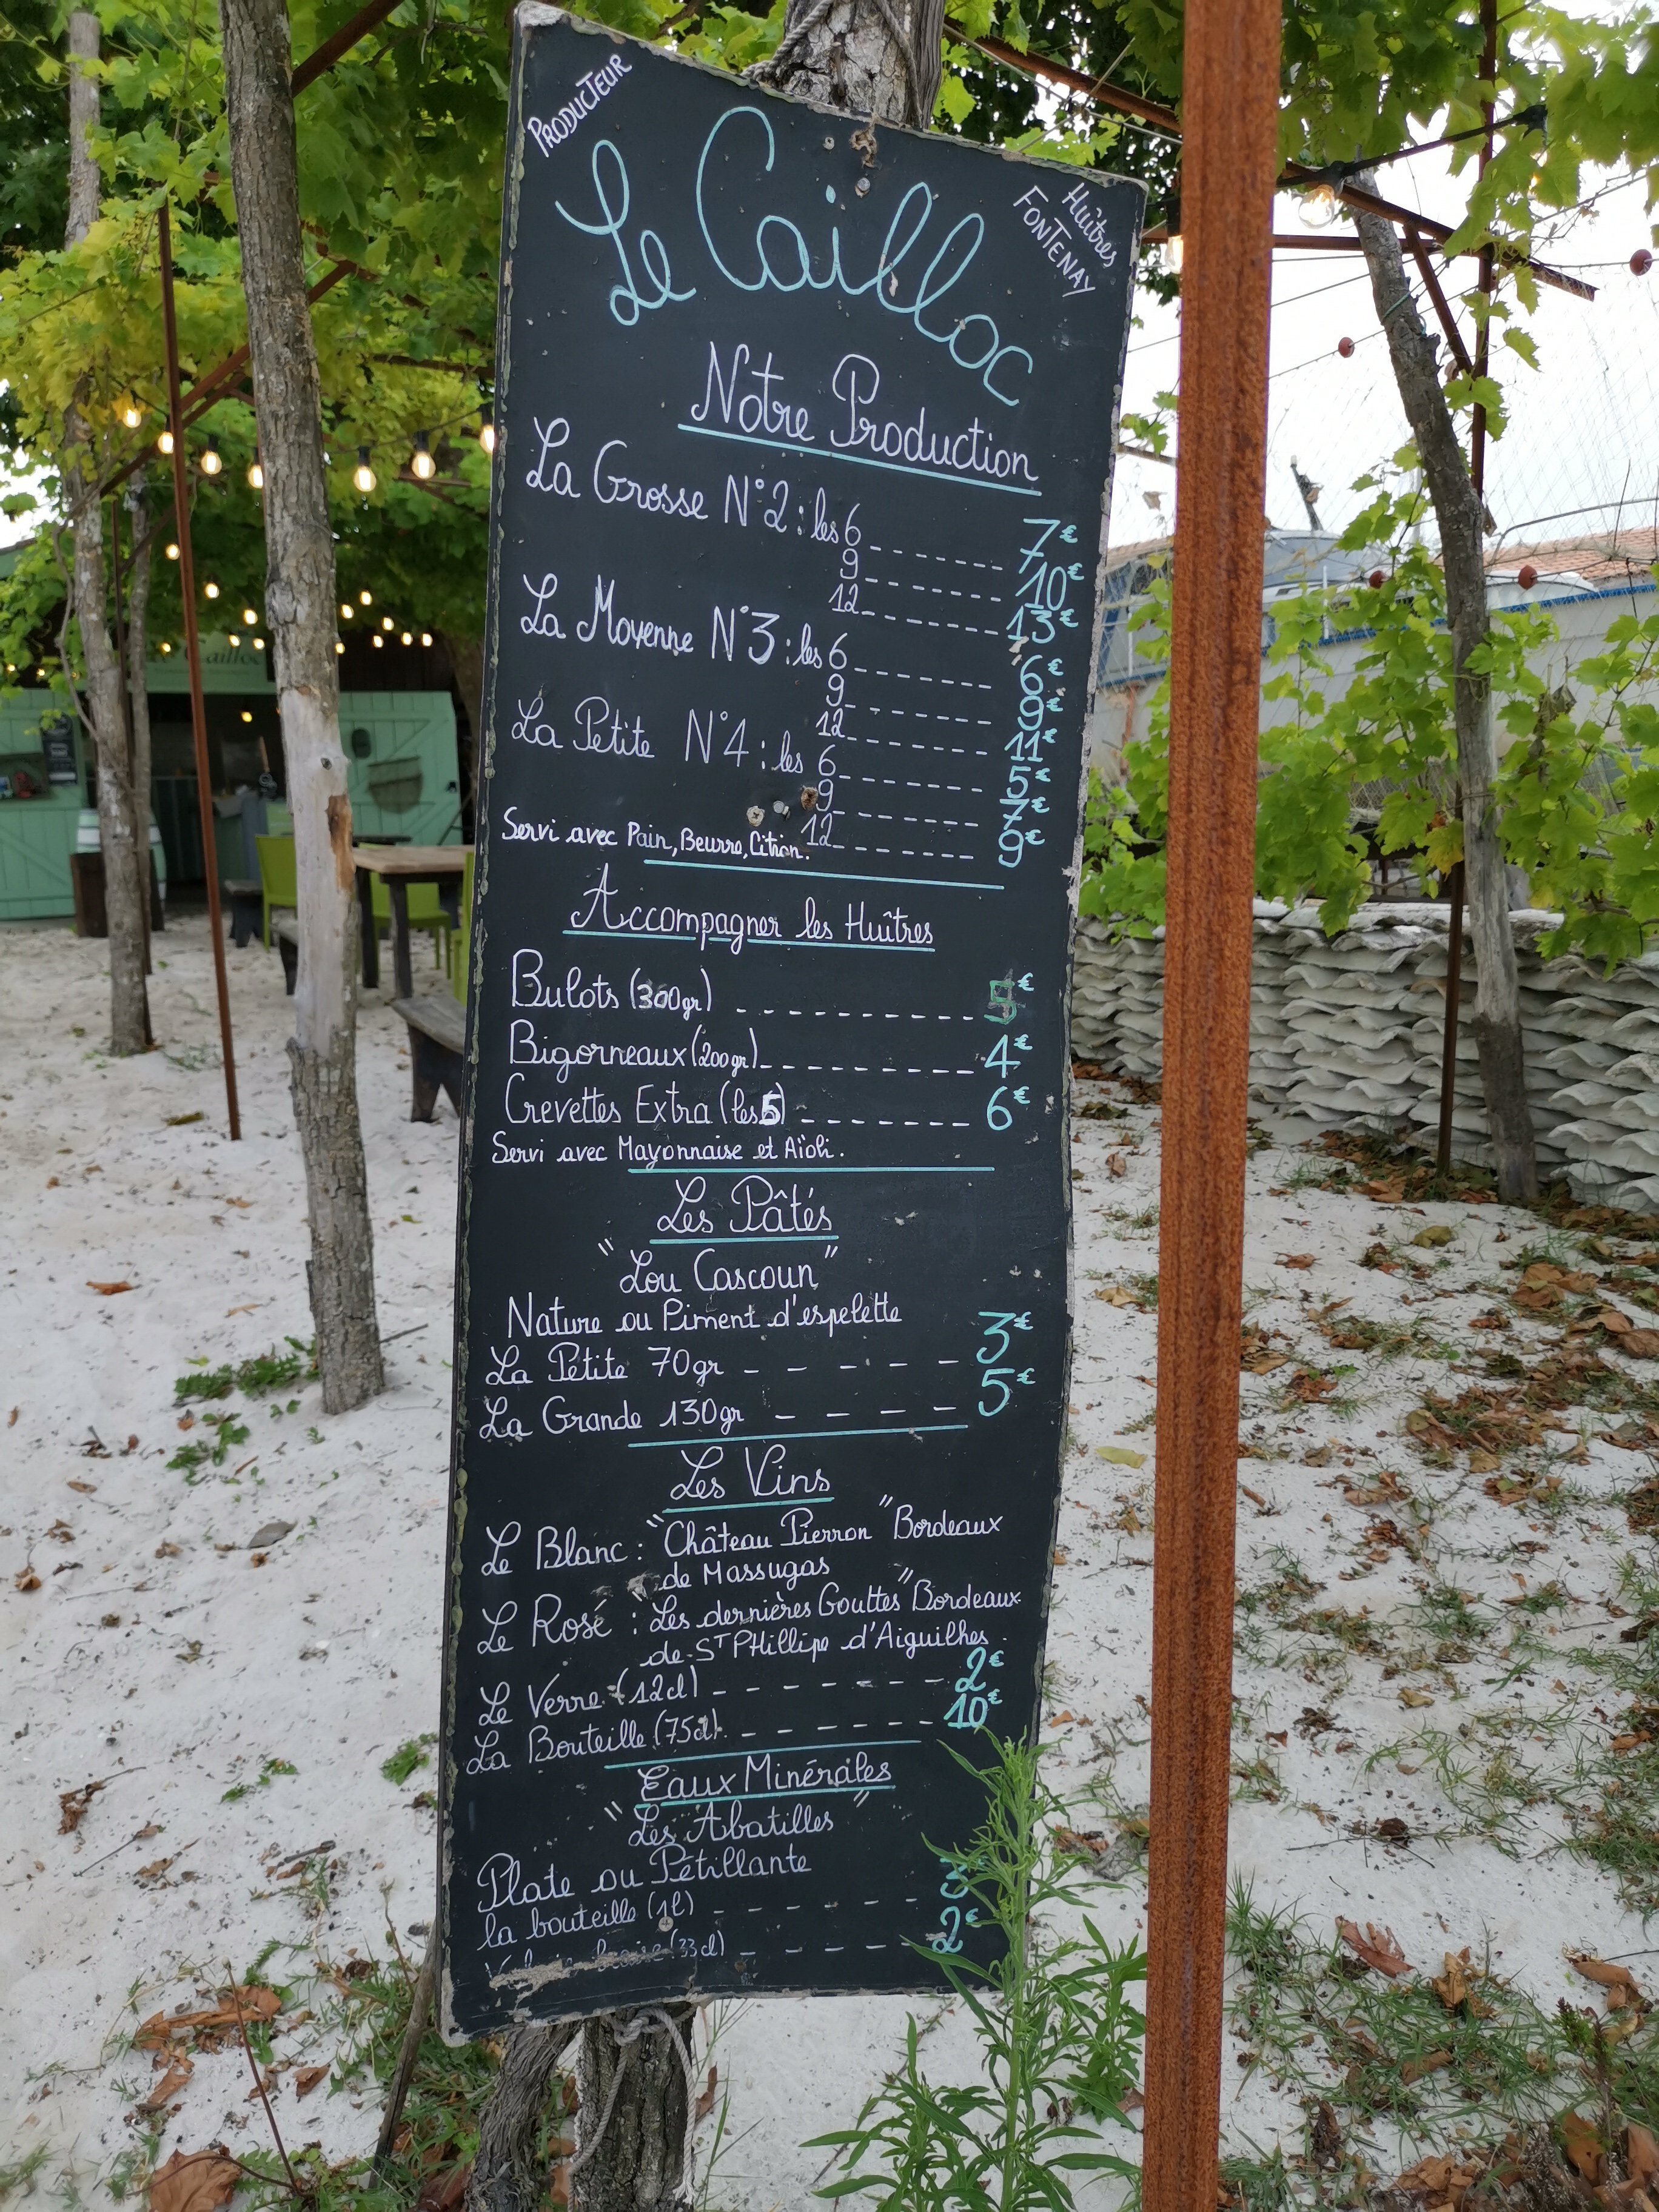 PRODUCTEUR
Le Cailloc
Huîtres
FONTENAY
Notre Production
La Grosse N°2 : les 6 ------ 7€
9 ------ 10€
12 ------ 13€
La Moyenne N°3 : les 6 ------ 6€
9 ------ 9€
12 ------ 11€
La Petite N°4 : les 6 ------ 5€
9 ------ 7€
12 ------ 9€
Servi avec Pain, Beurre, Citron.
Accompagner les Huîtres
Bulots (300gr) ---------- 5€
Bigorneaux (200gr) ---------- 4€
Crevettes Extra (les 5) ------- 6€
Servi avec Mayonnaise et Aïoli.
Les Pâtés
"Lou Cascoun"
Nature ou Piment d'espelette
La Petite 70gr ----- 3€
La Grande 130gr ---- 5€
Les Vins
Le Blanc : "Château Pierron" Bordeaux
de Massugas
Le Rosé : "Les dernières Gouttes" Bordeaux
de ST PHillipe d'Aiguilhes
Le Verre (12cl) ------- 2€
La Bouteille (75cl) ------ 10€
Eaux Minérales
"Les Abatilles"
Plate ou Pétillante
la bouteille (1l) ----- 3
(33cl) ----- 2€
Cailloc